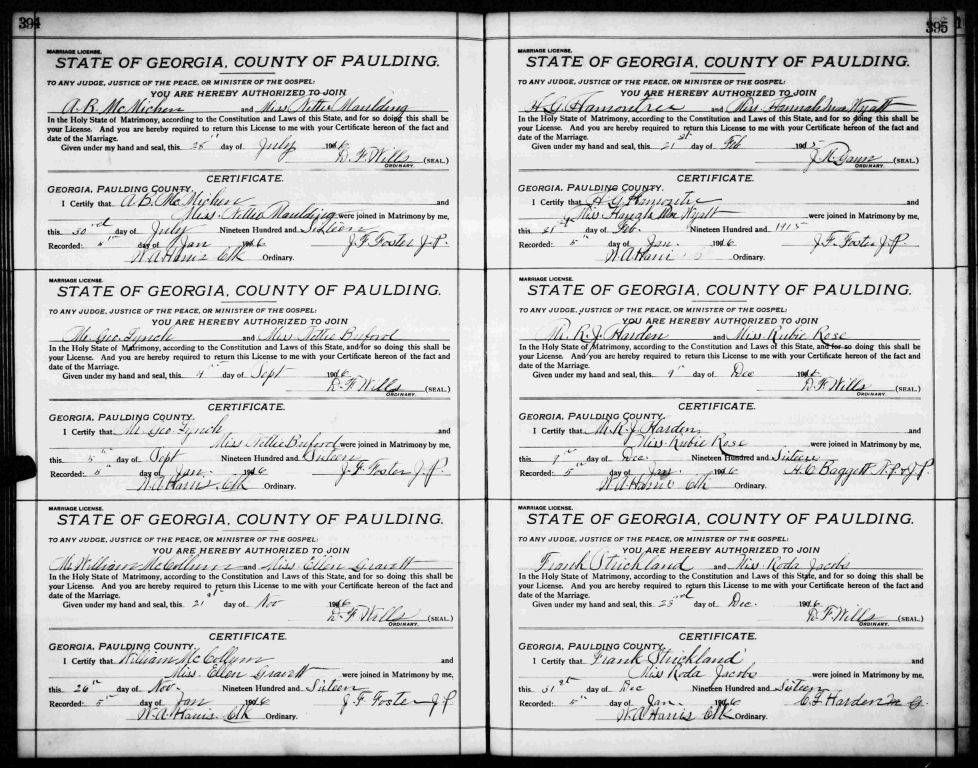 394
MARRIAGE LICENSE.
STATE OF GEORGIA, COUNTY OF PAULDING.
TO ANY JUDGE, JUSTICE OF THE PEACE, OR MINISTER OF THE GOSPEL:
YOU ARE HEREBY AUTHORIZED TO JOIN
A. B. McMichen and Miss Nettie Maulding
In the Holy State of Matrimony, according to the Constitution and Laws of this State, and for so doing this shall be
your License. And you are hereby required to return this License to me with your Certificate hereon of the fact and
date of the Marriage.
Given under my hand and seal, this 28" day of July 1916
D. F. Wills (SEAL.)
ORDINARY.
CERTIFICATE.
GEORGIA, PAULDING COUNTY.
I Certify that A. B. McMichen and
Miss Nettie Maulding were joined in Matrimony by me,
this 30rd day of July Nineteen Hundred and Sixteen
Recorded: 5th day of Jan 1916 J. F. Foster J. P.
W. A. Harris Clk Ordinary.
MARRIAGE LICENSE.
STATE OF GEORGIA, COUNTY OF PAULDING.
TO ANY JUDGE, JUSTICE OF THE PEACE, OR MINISTER OF THE GOSPEL:
YOU ARE HEREBY AUTHORIZED TO JOIN
Mr. Geo. Lynch and Miss Nettie Buford
In the Holy State of Matrimony, according to the Constitution and Laws of this State, and for so doing this shall be
your License. And you are hereby required to return this License to me with your Certificate hereon of the fact and
date of the Marriage.
Given under my hand and seal, this 4" day of Sept 1916
D. F. Wills (SEAL.)
ORDINARY.
CERTIFICATE.
GEORGIA, PAULDING COUNTY.
I Certify that Mr. Geo. Lynch and
Miss Nettie Buford were joined in Matrimony by me,
this 5th day of Sept Nineteen Hundred and Sixteen
Recorded: 5" day of Jan. 1916 J. F. Foster J. P.
W. A. Harris Clk Ordinary.
MARRIAGE LICENSE.
STATE OF GEORGIA, COUNTY OF PAULDING.
TO ANY JUDGE, JUSTICE OF THE PEACE, OR MINISTER OF THE GOSPEL:
YOU ARE HEREBY AUTHORIZED TO JOIN
Mr. William McCollum and Miss Ellen Gravett
In the Holy State of Matrimony, according to the Constitution and Laws of this State, and for so doing this shall be
your License. And you are hereby required to return this License to me with your Certificate hereon of the fact and
date of the Marriage.
Given under my hand and seal, this 21st day of Nov 1916
D. F. Wills (SEAL.)
ORDINARY.
CERTIFICATE.
GEORGIA, PAULDING COUNTY.
I Certify that William McCollum and
Miss. Ellen Gravett were joined in Matrimony by me,
this 26th day of Nov. Nineteen Hundred and Sixteen
Recorded: 5th day of Jan 1916 J. F. Foster J. P.
W. A. Harris Clk Ordinary.
395
MARRIAGE LICENSE.
STATE OF GEORGIA, COUNTY OF PAULDING.
TO ANY JUDGE, JUSTICE OF THE PEACE, OR MINISTER OF THE GOSPEL:
YOU ARE HEREBY AUTHORIZED TO JOIN
H. G. Hamontree and Miss. Hannah Wyatt
In the Holy State of Matrimony, according to the Constitution and Laws of this State, and for so doing this shall be
your License. And you are hereby required to return this License to me with your Certificate hereon of the fact and
date of the Marriage.
Given under my hand and seal, this 21st day of Feb 1915
(SEAL.)
ORDINARY.
CERTIFICATE.
GEORGIA, PAULDING COUNTY.
I Certify that H. G. and
Miss Wyatt were joined in Matrimony by me,
this 21st day of Feb. Nineteen Hundred and 1915
Recorded: 5" day of Jan. 1916 J. F. Foster J. P.
W. A. Harris Ordinary.
MARRIAGE LICENSE.
STATE OF GEORGIA, COUNTY OF PAULDING.
TO ANY JUDGE, JUSTICE OF THE PEACE, OR MINISTER OF THE GOSPEL:
YOU ARE HEREBY AUTHORIZED TO JOIN
Mr. R. J. Harden and Miss Rubie Rose
In the Holy State of Matrimony, according to the Constitution and Laws of this State, and for so doing this shall be
your License. And you are hereby required to return this License to me with your Certificate hereon of the fact and
date of the Marriage.
Given under my hand and seal, this 9" day of Dec 1916
D. F. Wills (SEAL.)
ORDINARY.
CERTIFICATE.
GEORGIA, PAULDING COUNTY.
I Certify that Mr. R. J. Harden and
Miss. Rubie Rose were joined in Matrimony by me,
this 9th day of Dec. Nineteen Hundred and Sixteen
Recorded: 5" day of Jan. 1916 H. C. Baggett N. P. & J. P.
W. A. Harris Clk Ordinary.
MARRIAGE LICENSE.
STATE OF GEORGIA, COUNTY OF PAULDING.
TO ANY JUDGE, JUSTICE OF THE PEACE, OR MINISTER OF THE GOSPEL:
YOU ARE HEREBY AUTHORIZED TO JOIN
Frank Strickland and Miss Roda Jacobs
In the Holy State of Matrimony, according to the Constitution and Laws of this State, and for so doing this shall be
your License. And you are hereby required to return this License to me with your Certificate hereon of the fact and
date of the Marriage.
Given under my hand and seal, this 23rd day of Dec. 1916
D. F. Wills (SEAL.)
ORDINARY.
CERTIFICATE.
GEORGIA, PAULDING COUNTY.
I Certify that Frank Strickland and
Miss Roda Jacobs were joined in Matrimony by me,
this 31st day of Dec Nineteen Hundred and Sixteen
Recorded: 5" day of Jan. 1916 C. L. Harden M. G.
W. A. Harris Clk Ordinary.